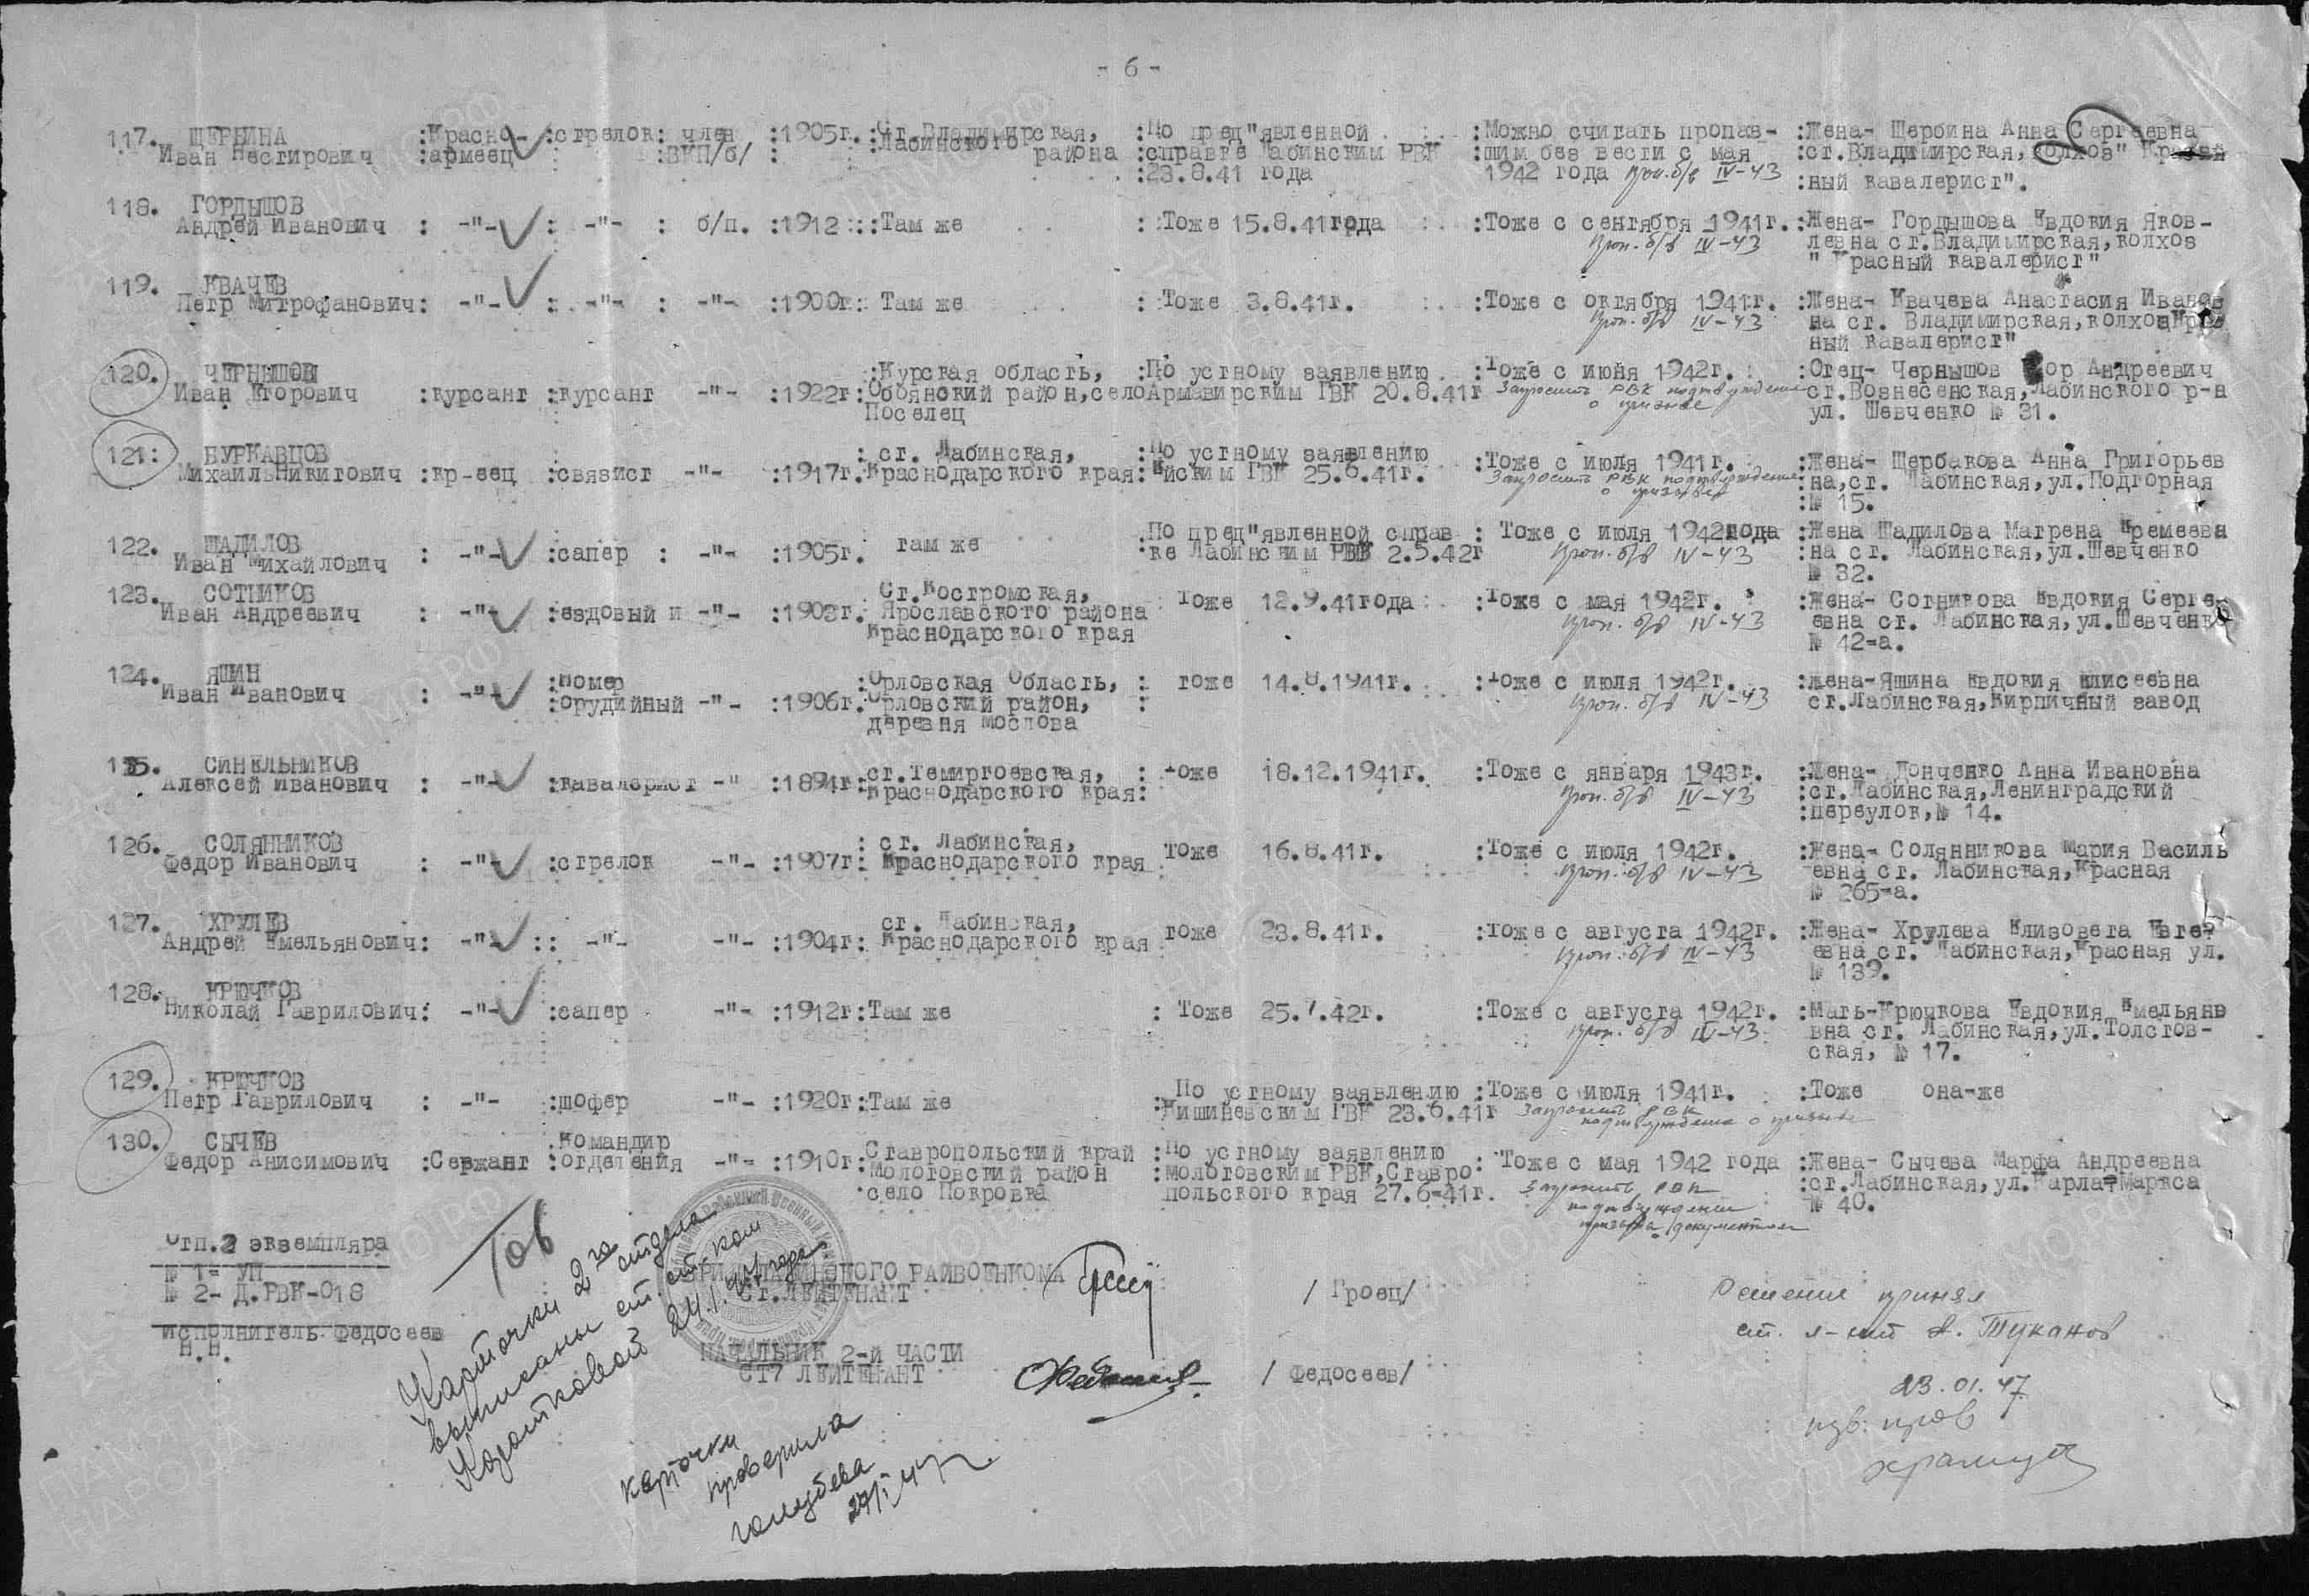 - 6 -
117. ЩЕРБИНА :Красно- :стрелок: член :1905г. Ст.Владимирская, :По пред"явленной :Можно считать пропав- :Жена- Щербина Анна Сергеевна
Иван Нестирович :армеец :ВКП/б/ : :Лабинского района :справке Лабинским РВК :шим без вести с мая :ст.Владимирская, колхоз"
:23.8.41 года 1942 года проп. б/в IV-43 :ный кавалерист".
118. ГОРДЫШОВ
Андрей Иванович : -"- : -"- : б/п. :1912 ::Там же : Тоже 15.8.41года :Тоже с сентября 1941г. :Жена- Гордышова Евдокия Яков-
проп. б/в IV-43 левна ст.Владимирская,колхоз
"Красный кавалерист"
119. КВАЧЕВ
Петр Митрофанович: -"- : -"- : -"- :1900г: Там же : Тоже 3.8.41г. :Тоже с октября 1941г. :Жена- Квачева Анастасия Иванов
проп. б/в IV-43 на ст. Владимирская,колхоз
ный кавалерист"
120. ЧЕРНЫШОВ :Курская область, :По устному заявлению :Тоже с июня 1942г. :Отец- Чернышов Егор Андреевич
Иван Егорович :курсант :курсант -"- :1922г: Обоянский район,село Армавирским ГВК 20.8.41г Запросить РВК подтверждение ст.Вознесенская,Лабинского р-н
Поселец о призыве ул. Шевченко № 31.
121: БУРКАВЦОВ : ст. Лабинская, :По устному заявлению
Михаил Никитович :кр-еец :связист -"- :1917г. Краснодарского края: Ейским ГВК 25.6.41г. :Тоже с июля 1941г. :Жена- Щербакова Анна Григорьев
Запросить РВК подтверждение :на,ст. Лабинская,ул.Подгорная
о призыве :№ 15.
122. ШАДИЛОВ там же По пред"явленной справ : Тоже с июля 1942года :Жена Шадилова Матрена Еремеевн
Иван Михайлович : -"- :сапер : -"- :1905г. ке Лабинским РВК 2.5.42г проп. б/в IV-43 :на ст. Лабинская,ул.Шевченко
№ 32.
123. СОТНИКОВ Ст.Костромская,
Иван Андреевич : -"- :ездовый и -"- :1903г. Ярославского района Тоже 12.9.41года :Тоже с мая 1942г. :Жена- Сотникова Евдокия Серге
Краснодарского края проп. б/в IV-43 евна ст. Лабинская,ул.Шевченко
№ 42-а.
124. ЯШИН :номер :Орловская Область, : тоже 14.8.1941г. :Тоже с июля 1942г. :Жена-Яшина Евдокия Елисеевна
Иван Иванович : -"- :орудийный -"- :1906г. Орловский район, : проп. б/в IV-43 ст.Лабинская,Кирпичный завод
деревня мостова
135. СИНЕЛЬНИКОВ :ст.Темиргоевская, : тоже 18.12.1941г. :Тоже с января 1943г. :Жена- Донченко Анна Ивановна
Алексей Иванович : -"- :кавалерист -" :1894г: Краснодарского края: проп. б/в IV-43 :ст.Лабинская,Ленинградский
:переулок,№ 14.
126. СОЛЯННИКОВ : ст. Лабинская,
Федор Иванович : -"- :стрелок -"- :1907г: Краснодарского края тоже 16.8.41г. :Тоже с июля 1942г. :Жена- Солянникова Мария Василь
проп. б/в IV-43 евна ст. Лабинская,Красная
№ 265-а.
127. ХРУЛЕВ ст. Лабинская,
Андрей Емельянович: -"- :: -"- -"- :1904г: Краснодарского края тоже 23.8.41г. :тоже с августа 1942г. :Жена- Хрулева Елизовета Евге
проп. б/в IV-43 евна ст. Лабинская,Красная ул.
№ 139.
128. КРЮЧКОВ
Николай Гаврилович: -"- :сапер -"- :1912г:Там же : Тоже 25.7.42г. :Тоже с августа 1942г. :Мать-Крючкова Евдокия Емельяно
проп. б/в IV-43 вна ст. Лабинская,ул.Толстов-
ская, № 17.
129. КРЮЧКОВ По устному заявлению :Тоже с июля 1941г. :Тоже она-же
Петр Гаврилович : -"- :шофер -"- :1920г:Там же Кишиневским ГВК 23.6.41г Запросить РВК
подтверждение о призыве
130. СЫЧЕВ .Командир Ставропольский край :По устному заявлению
Федор Анисимович :Сержант :отделения -"- :1910г: Молотовский район :Молотовским РВК,Ставро: Тоже с мая 1942 года :Жена- Сычева Марфа Андреевна
село Покровка польского края 27.6-41г. Запросить РВК :ст.Лабинская,ул.Карла-Маркса
подтверждение № 40.
призыва документом
Отп.2 экземпляра
№ 1- УП
№ 2- Д.РВК-018
Исполнитель Федосеев
Н.Н.
Тов
Карточки 2го отдела
выписаны ст.
Коротковой 24.1.47 года
РАЙВОЕНКОМА
Ст.ЛЕЙТЕНАНТ / Гроец/
НАЧАЛЬНИК 2-й ЧАСТИ
СТ7 ЛЕЙТЕНАНТ / Федосеев/
карточки
проверила
голубева
27/I 47г.
Решение принял
ст. л-нт А. Туканов
23.01.47